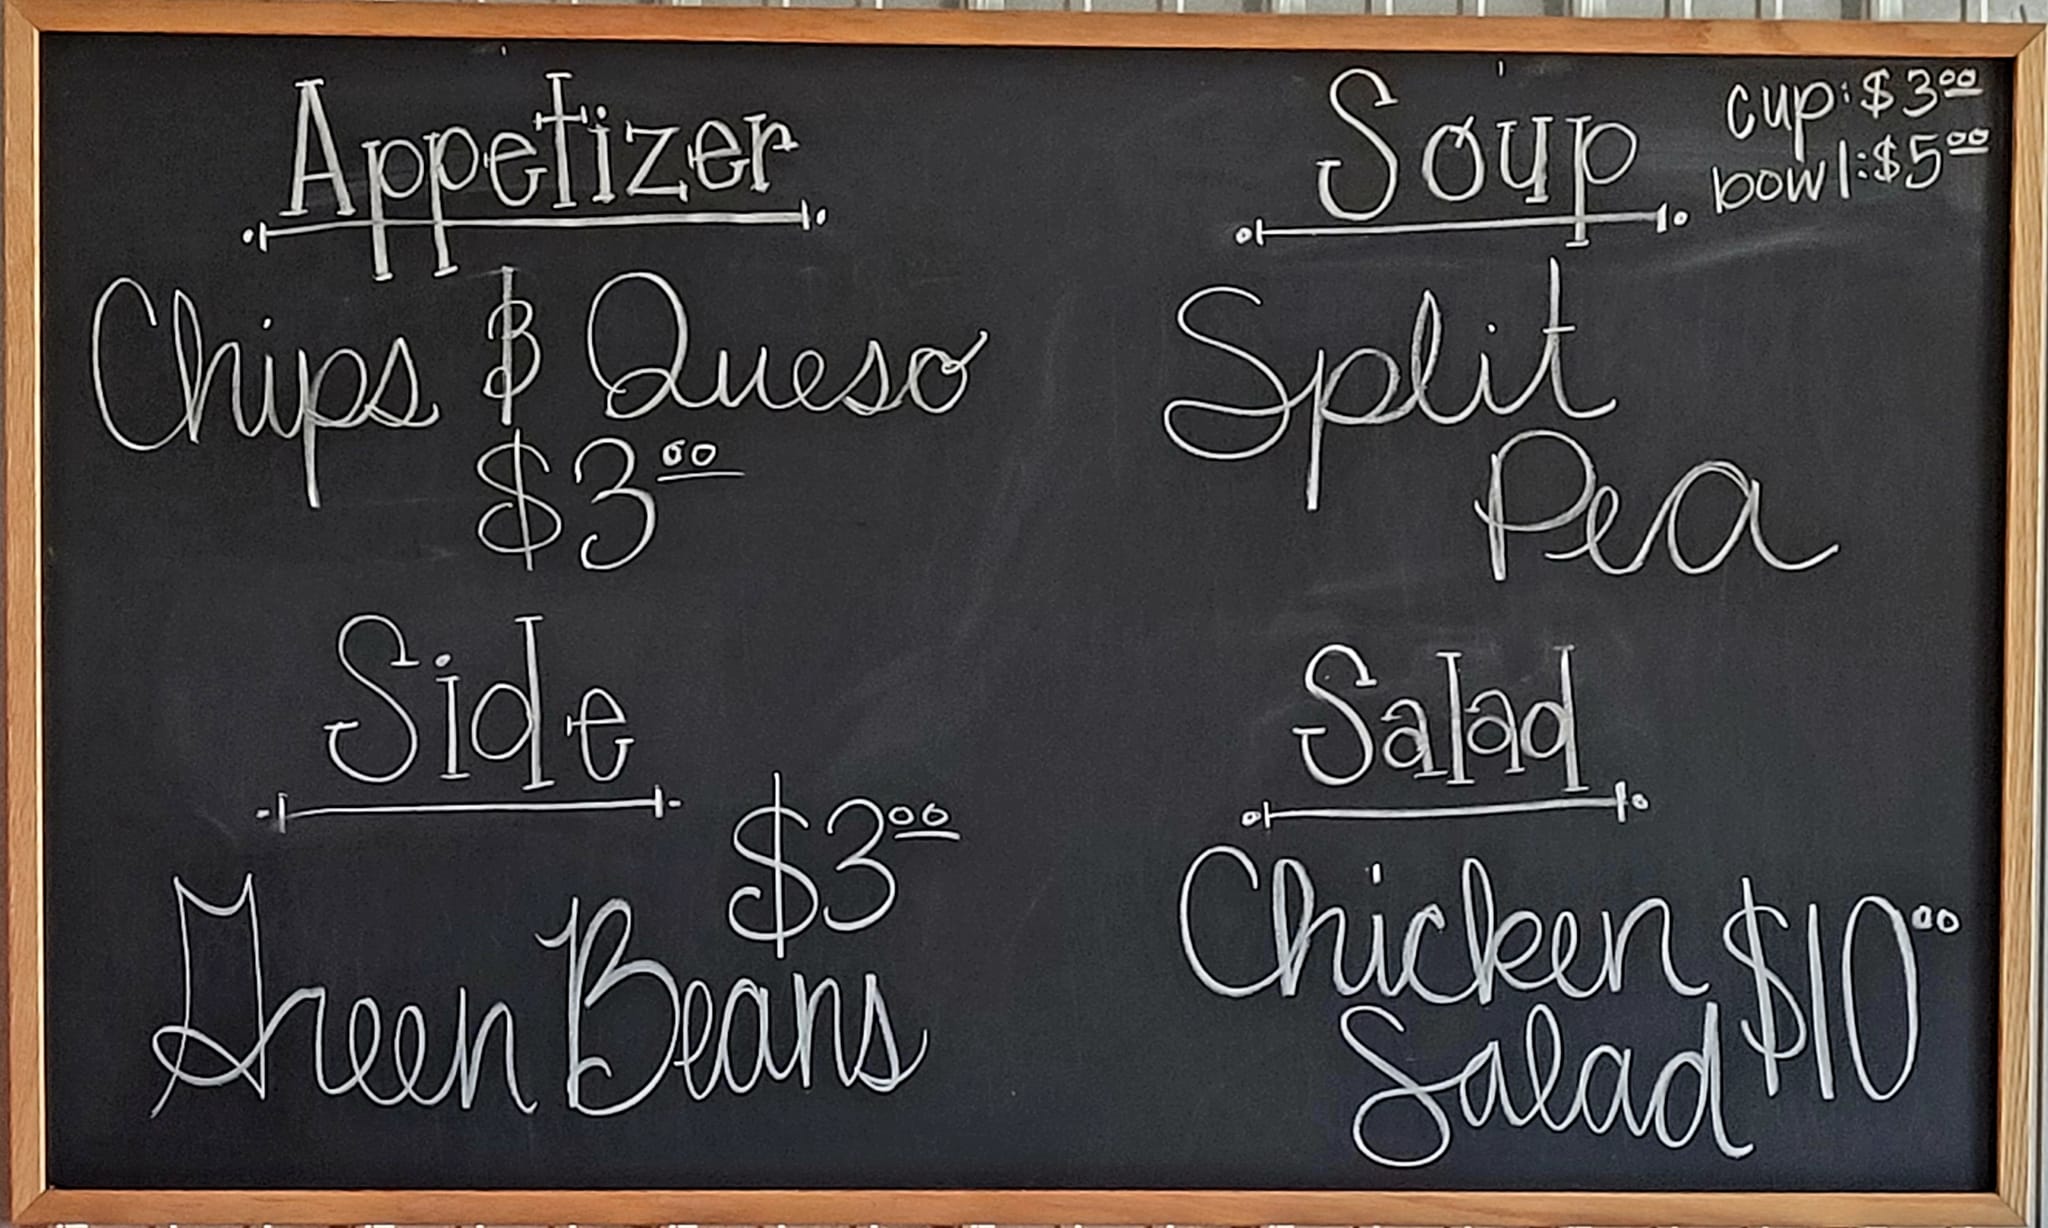 Appetizer
Chips & Queso
$3.00
Soup
cup: $3.00
bowl: $5.00
Split
Pea
Side
$3.00
Green Beans
Salad
Chicken
Salad
$10.00